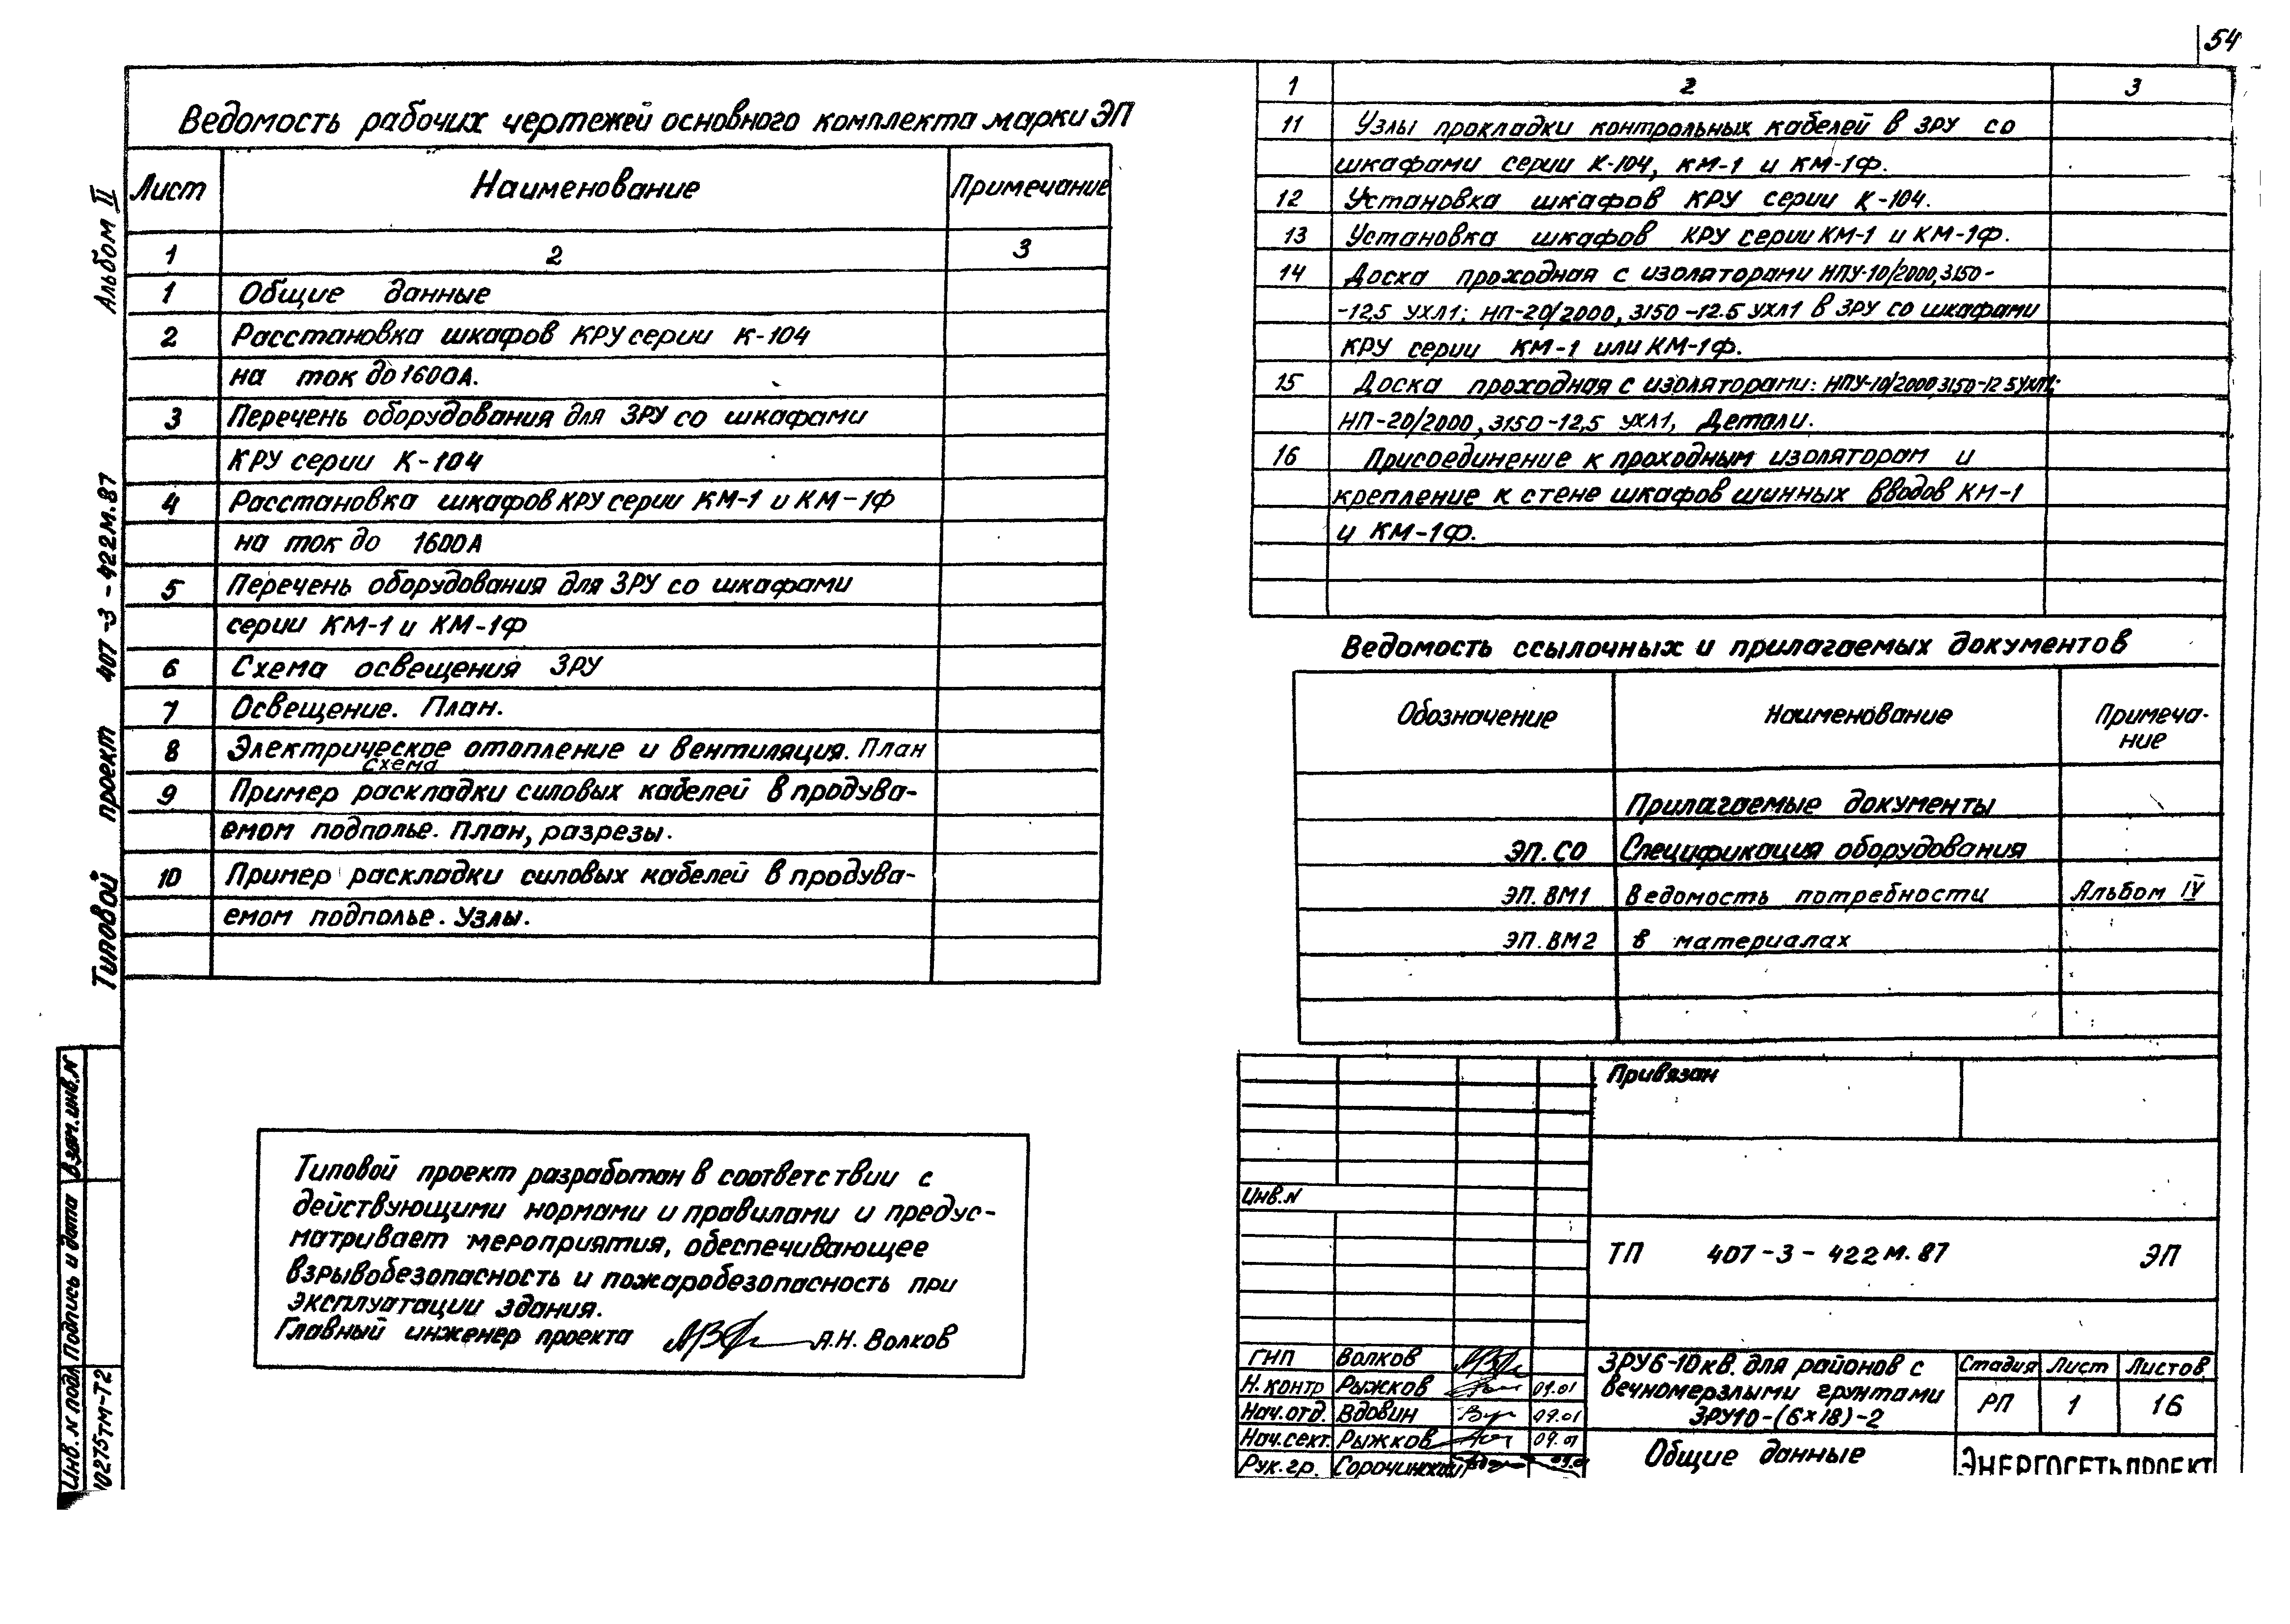 54
Ведомость рабочих чертежей основного комплекта марки ЭП
Лист Наименование Примечание
1 2 3
1 Общие данные
2 Расстановка шкафов КРУ серии К-104
на ток до 1600А.
3 Перечень оборудования для ЗРУ со шкафами
КРУ серии К-104
4 Расстановка шкафов КРУ серии КМ-1 и КМ-1Ф
на ток до 1600А
5 Перечень оборудования для ЗРУ со шкафами
серии КМ-1 и КМ-1Ф
6 Схема освещения ЗРУ
7 Освещение. План.
8 Электрическое отопление и вентиляция. План
схема
9 Пример раскладки силовых кабелей в продува-
емом подполье. План, разрезы.
10 Пример раскладки силовых кабелей в продува-
емом подполье. Узлы.
1 2 3
11 Узлы прокладки контрольных кабелей в ЗРУ со
шкафами серии К-104, КМ-1 и КМ-1Ф.
12 Установка шкафов КРУ серии К-104.
13 Установка шкафов КРУ серии КМ-1 и КМ-1Ф.
14 Доска проходная с изоляторами НПУ-10/2000,3150-
-12,5 УХЛ1; НП-20/2000, 3150-12.5 УХЛ1 в ЗРУ со шкафами
КРУ серии КМ-1 или КМ-1Ф.
15 Доска проходная с изоляторами: НПУ-10/2000 3150-12 5УХЛ1;
НП-20/2000, 3150-12,5 УХЛ1, Детали.
16 Присоединение к проходным изоляторам и
крепление к стене шкафов шинных вводов КМ-1
и КМ-1Ф.
Ведомость ссылочных и прилагаемых документов
Обозначение Наименование Примеча-
ние
Прилагаемые документы
ЭП. СО Спецификация оборудования
ЭП. ВМ1 Ведомость потребности Альбом IV
ЭП. ВМ2 в материалах
Типовой проект разработан в соответствии с
действующими нормами и правилами и предус-
матривает мероприятия, обеспечивающее
взрывобезопасность и пожаробезопасность при
эксплуатации здания.
Главный инженер проекта А.Н. Волков
Привязан
Инв.N
ТП 407-3-422м.87 ЭП
ГНП Волков
Н.контр Рыжков 09.01
Нач.отд. Вдовин 09.01
Нач.сект. Рыжков 09.01
Рук.гр. Сорочинский
ЗРУ6-10кв. для районов с
вечномерзлыми грунтами
ЗРУ10-(6х18)-2
Общие данные
Стадия Лист Листов
РП 1 16
ЭНЕРГОСЕТЬПРОЕКТ
Типовой проект 407-3-422м.87 Альбом II
Инв. N подл. Подпись и дата Взам.инв.N
10275тм-Т2